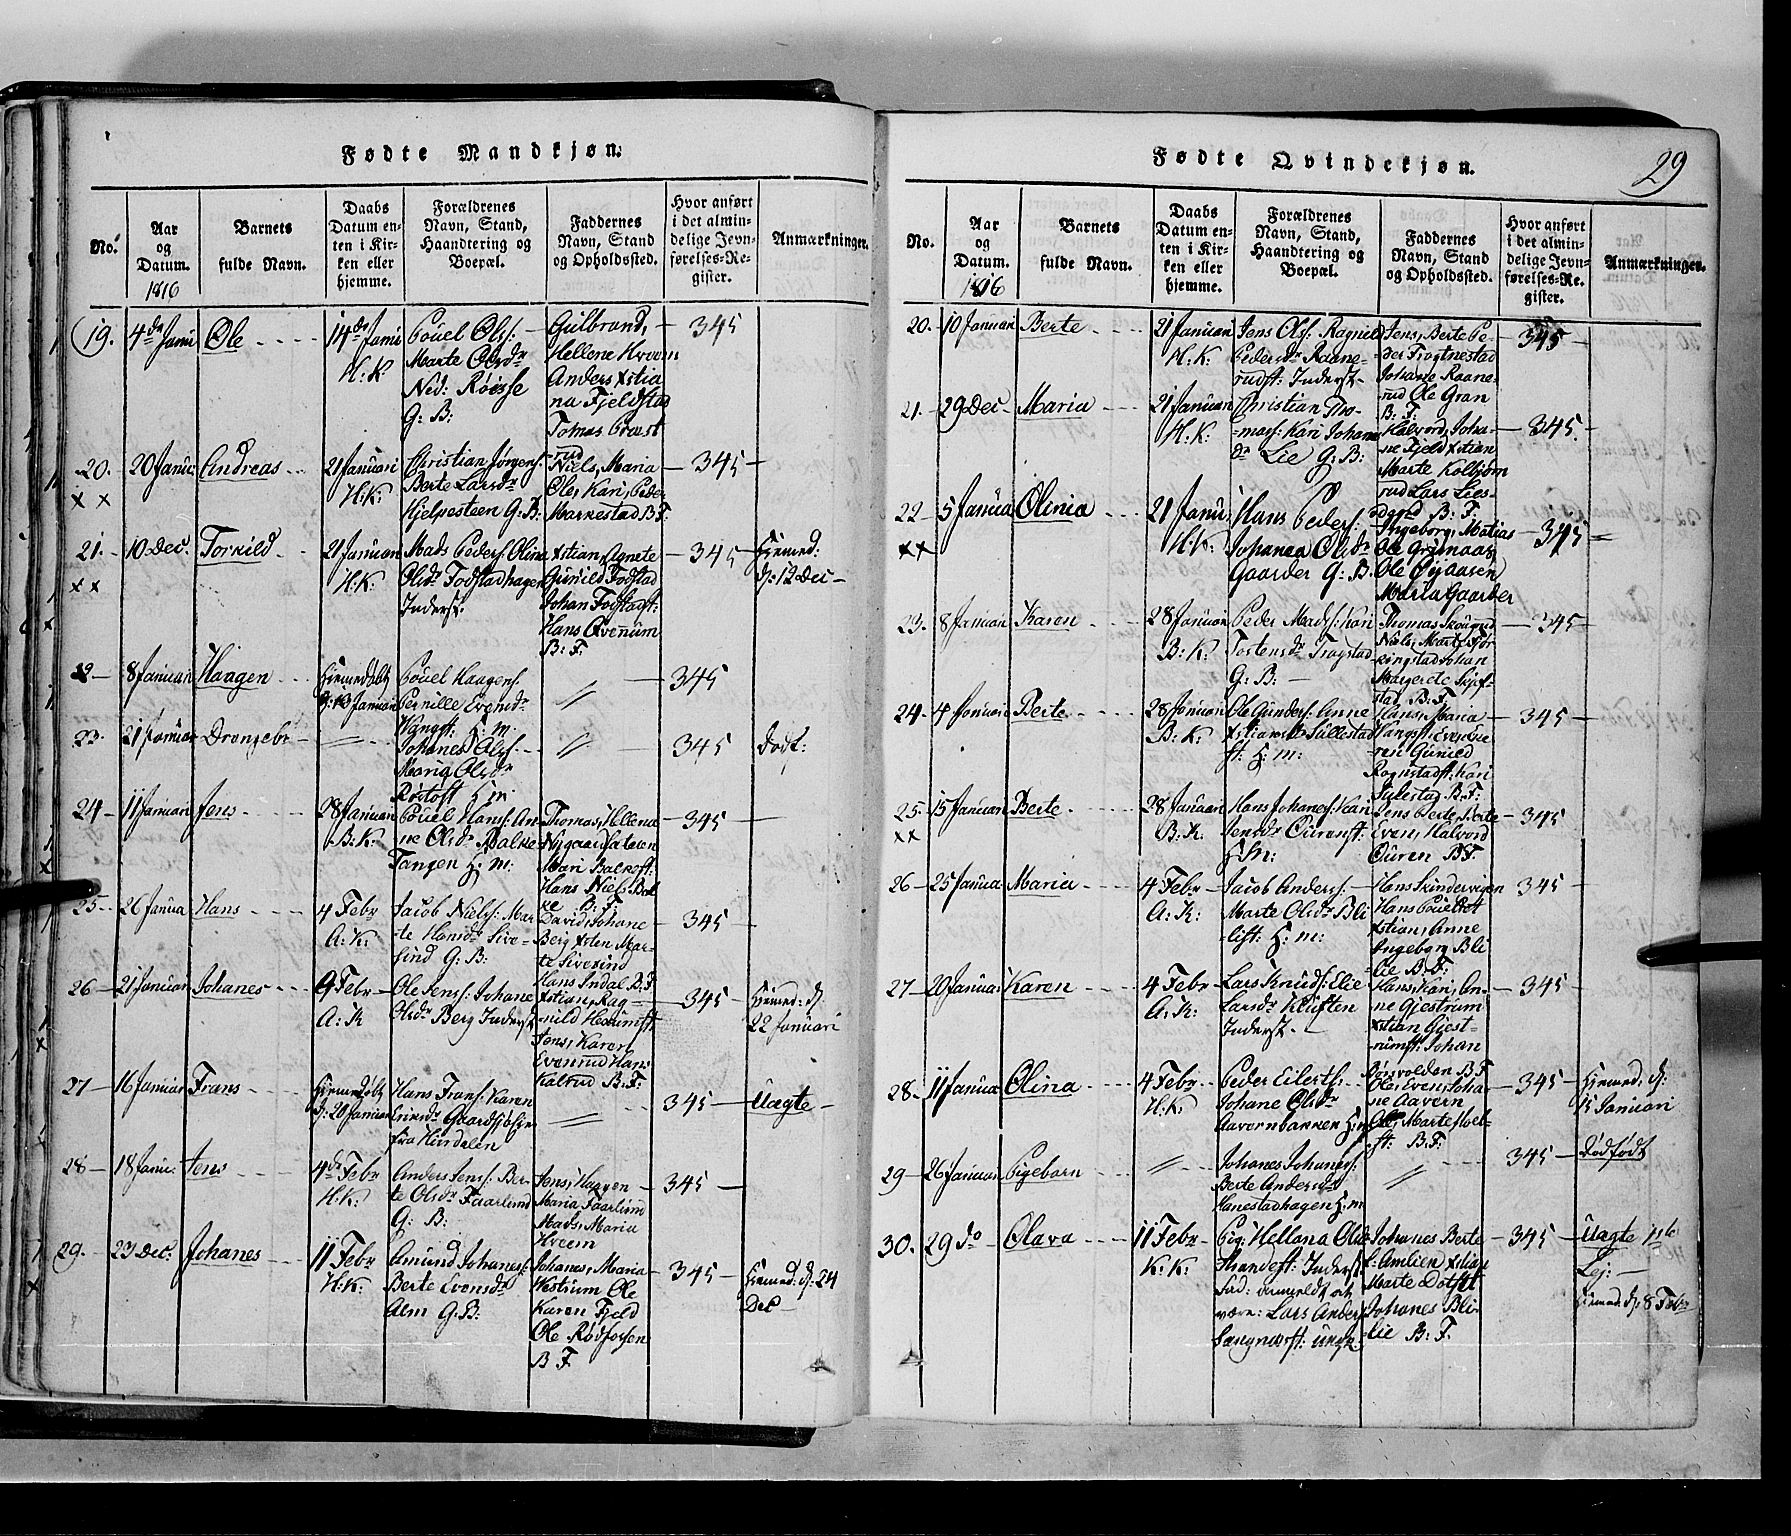 Fødte Mandkjøn.
No.
Aar
og
Datum.
1816
Barnets
fulde Navn.
Daabs
Datum en-
ten i Kir-
ken eller
hjemme.
Forældrenes
Navn, Stand,
Haandtering og
Boepæl.
Faddernes
Navn, Stand
og Opholdssted.
Hvor anført
i det almin-
delige Jevn-
førelses-Re-
gister.
Anmærkninger.
19. 4de Janu Ole 14de Janu
H: K
Pouel Ols:
Marte Olsdr
Ned: Røisse
G: B:
Gulbrand,
Hellene Kroem
Anders Xstia
na Fjeldstad
Tomas
rud
345
20. 20 Janu: Andreas 21 Januari
H: K:
Christian Jørgens:
Berte Larsdr
Hjelpesteen G: B:
Niels, Maria
Ole, Kari, Peder
Marnestad B F:
345
x x
21. 10 Dec. Torkild 21 Januari
H: K.
Mads Peders: Olina
Olsdr Fodstadhagen
Inderst.
Xstian, Agnete
Gunild Fodstad
Johan Fodstadt:
Hans Qvernum
B: F.
345
Hjemed:
d: 12 Dec
x x
22 8 Januari Haagen Hjemedøbt
d: 13 Januari
Pouel Haagens:
Pernille Evensdr
Vangst: H: m.
345
23. 21 Januar Drengebr
Johanes Ols:
Maria Olsdr
Røstøst H: m.
345
Dødf:
24 11 Januari Jens 28 Januari
B: K.
Pouel Hans: An
ne Olsdr Balke
Tangen H: m:
Thomas, Hellena
Nygaard
Mari Balkest:
Hans Niels Bal
ke B: F:
345
25 26 Janua Hans 4 Febr
A: K.
Jacob Niels: Mar
te Hansdr Sive-
sind G: B:
David, Johane
Berg Xsten Mar-
te Sivesind
Hans Indal B: F
345
26 21 Januari Johanes 9 Febr
A: K
Ole Jens: Johane
Olsdr Berg Inderst
Xstian, Rag
nild
Jens, Karen
Evenrud Hans
Kalrud B: F.
345
Hjemed: d
22 Januari
27 16 Januar Frans Hjemedøbt
d: 20 Januar
Hans Frans: Karen
Eriksdr
fra Hurdalen
345
Uægte
28 18 Janu: Jens 4de Febr
H: K.
Anders Jens: Ber-
te Olsdr Faarlund
G: B:
Jens, Haagen
Maria Faarlund
Mads, Maria
Kreem
345
29. 23 Dec: Johanes 11 Febr
H: K.
Amund Johanes:
Berte Evensdr
Alm G: B:
Johanes, Maria
Westrum Ole
Karen Fjeld
Ole Rødfossen
B F.
345
Hjemed: d: 24
Dec
Fødte Qvindekjøn.
29
No.
Aar
og
Datum.
1816
Barnets
fulde Navn.
Daabs
Datum en-
ten i Kir-
ken eller
hjemme.
Forældrenes
Navn, Stand,
Haandtering og
Boepæl.
Faddernes
Navn, Stand
og Opholdssted.
Hvor anført
i det almin-
delige Jevn-
førelses-Re-
gister.
Anmærkninger.
20. 10 Januari Berte 21 Januari
H: K.
Jens Ols: Ragnild
Pedersdr Raane-
rudst: Inderst
Jens, Berte Pe-
der Frognestad
Johane Raane-
rud Ole Gran
B: F:
345
21. 29 Dec Maria 21 Januari
H: K:
Christian Tho-
mas: Kari Johan
dr Lie G: B:
Halvord, Joha-
ne Fjeld Xstian
Marte Kolbjørn
rud Lars Lies-
B: F.
345.
22 5 Janua Olinia 21 Janu:
H: K:
Hans Peders:
Johanna Olsdr
Gaarder G: B.
Ingeborg, Matias
Ole Grimaas
Ole Øyaasen
Maria Gaarder
345
xx
23. 8 Januari Karen 28 Januari
B: K:
Peder Mads: Kari
Tostensdr Frogstad
G: B:
Thomas
Niels, Marte
Johan
Margrete
stad B. F.
345
24. 4 Januari Berte 28 Januari
B: K.
Ole Gunders: Anne
Xstiansdr Sillestad
st: H: m:
Hans, Maria
Vangst: Even
ren Gunild
Rognstadst: Kari
B: F.
345
25. 15 Januari Berte 28 Januari
B: K.
Hans Johanes: Kari
Jensdr Øurenst:
H: m:
Jens Berte Berte
Even, Halvord
Ouren B F.
345
xx
26 25 Janua Maria 4 Febr
A: K:
Jacob Anders:
Marte Olsdr Bli
liest: H: m:
Hans
Hans
Xstian, Anne
Ingeborg Bli
lie B: F:
345
27 20 Januari Karen 4 Febr
A: K:
Lars Knuds: Elie
Larsdr Kluften
Inderst.
Hans, Kari, An-
ne Gjestrum
Xstian Gjest-
rumst: Johan
B F.
345
28. 11 Janua Olina 4 Febr
H: K.
Peder Eilerts:
Johane Olsdr
Aavernbakken H: m
Ole, Even, Joha
ne Aavern
Ole, Marte
st: B: F:
345
Hjemed: d:
15 Januari
29 26 Januari Pigebarn
Johanes Johanes:
Berte Andersdr
Hanestadhagen H: m
345
Dødfødt
30. 29 do Olava 11 Febr
K: K.
Pig: Hellena Ols
Strandest: Inderst
være: Lars Anders
ungk
Johanes Berte
Xstian
Marte
Johanes Bli-
lie B: F.
345
Uægte 1ste
Lej:
Hjemed: d: 8 Febr